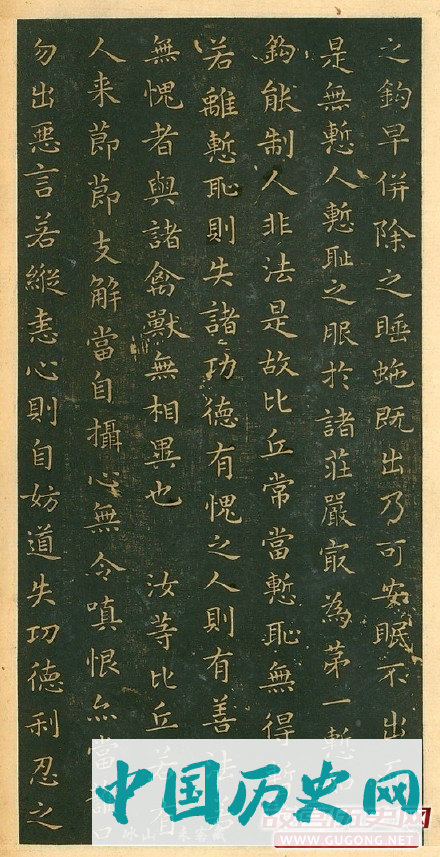 之鈎早併除之睡虵既出乃可安眠不出
是無慙人慙耻之服於諸莊嚴冣為第一慙
鈎能制人非法是故比丘常當慙恥無得
若離慙恥則失諸功德有愧之人則有善法
無愧者與諸禽獸無相異也 汝等比丘若有
人来節節支解當自攝心無令嗔恨亦當
勿出惡言若縱恚心則自妨道失功德利忍之
中国历史网
WWW.GUGONG.NET